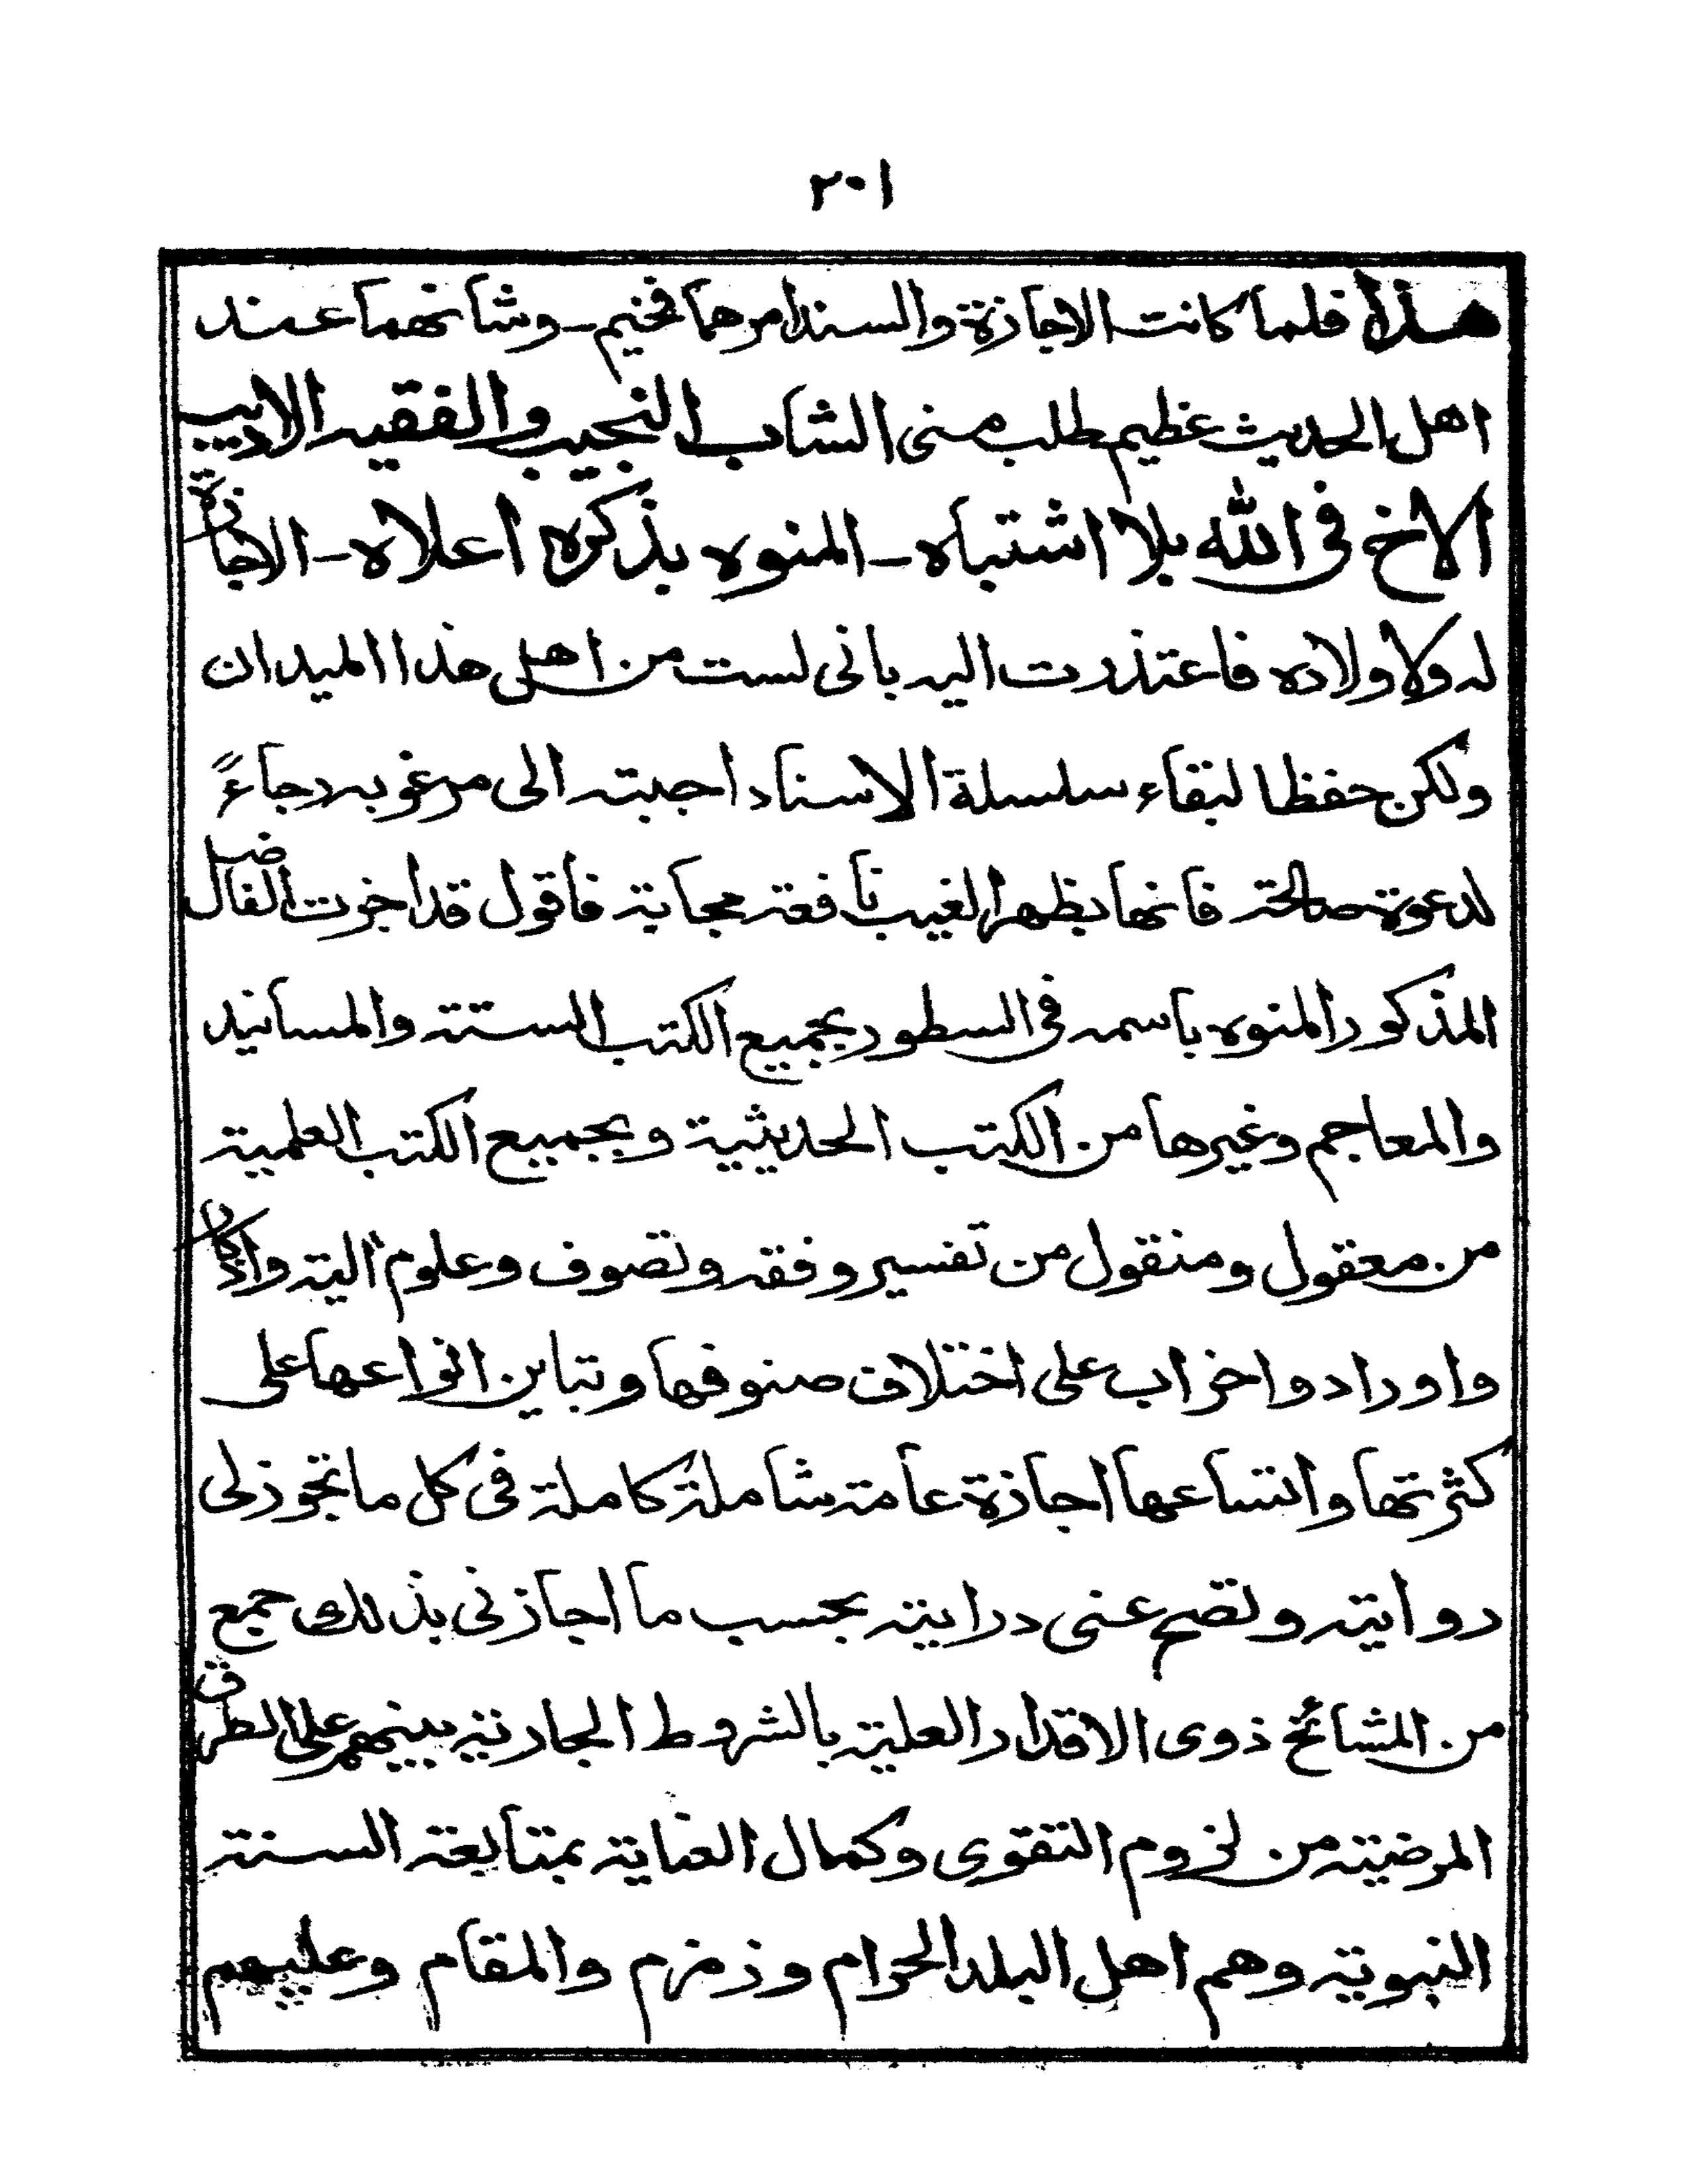 ٢٠١
هذا فلما كانت الاجازة والسند امرهما فخيم ـ وشانهما عند
اهل الحديث عظيم طلب منى الشاب النجيب والفقيه الاديب
الاخ فى الله بلا اشتباه ـ المنوه بذكره اعلاه ـ الاجازة
له ولاولاده فاعتذرت اليه بانى لست من اهل هذا الميدان
ولكن حفظا لبقاء سلسلة الاسناد اجبته الى مرغوبه رجاءً
لدعوة صالحة فانها بظهر الغيب نافعة مجابة فاقول قد اجزت الفاضل
المذكور المنوه باسمه فى السطور بجميع الكتب الستة والمسانيد
والمعاجم وغيرها من الكتب الحديثية وبجميع الكتب العلمية
من معقول ومنقول من تفسير وفقه وتصوف وعلوم اليه واذكار
واوراد واحزاب على اختلاف صنوفها وتباين انواعها على
كثرتها واتساعها اجازة عامة شاملة كاملة فى كل ما تجوز لى
روايته وتصح عنى درايته بحسب ما اجازنى بذلك جمع
من المشائخ ذوى الاقدار العلية بالشروط الجارية بينهم على الطرق
المرضية من لزوم التقوى وكمال العناية بمتابعة السنة
النبوية وهم اهل البلد الحرام وزمزم والمقام وعليهم